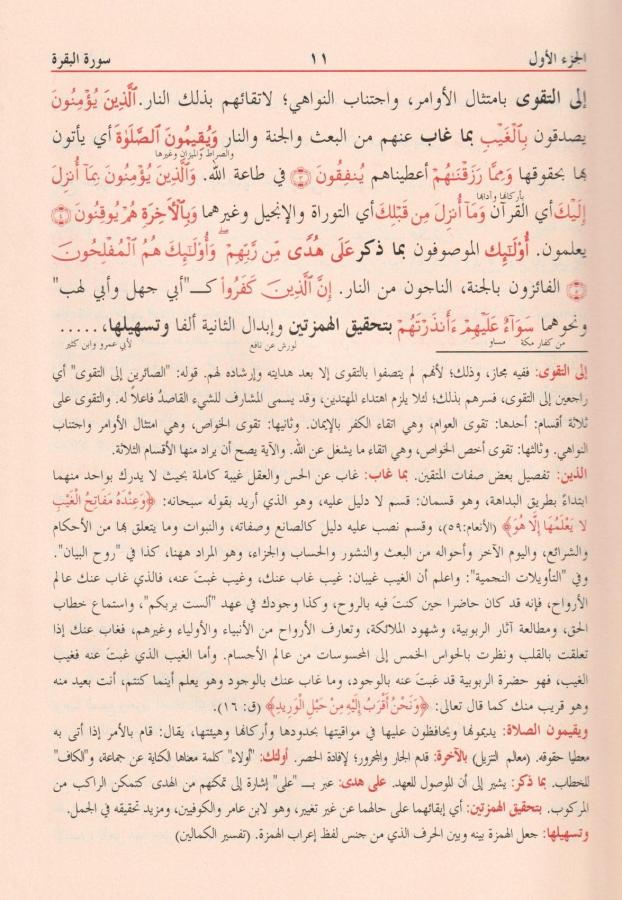 الجزء الأول ١١ سورة البقرة
إلى التقوى بامتثال الأوامر، واجتناب النواهي؛ لاتقائهم بذلك النار. ٱلَّذِينَ يُؤْمِنُونَ
يصدقون بِٱلْغَيْبِ بما غاب عنهم من البعث والجنة والنار وَيُقِيمُونَ ٱلصَّلَوٰةَ أي يأتون
والصراط والميزان وغيرها
بها بحقوقها وَمِمَّا رَزَقْنَٰهُمْ أعطيناهم يُنفِقُونَ ۝٣ في طاعة الله. وَٱلَّذِينَ يُؤْمِنُونَ بِمَآ أُنزِلَ
بأركانها وآدابها
إِلَيْكَ أي القرآن وَمَآ أُنزِلَ مِن قَبْلِكَ أي التوراة والإنجيل وغيرهما وَبِٱلْأَخِرَةِ هُمْ يُوقِنُونَ ۝٤
يعلمون. أُو۟لَٰٓئِكَ الموصوفون بما ذكر عَلَىٰ هُدًى مِّن رَّبِّهِمْ ۖ وَأُو۟لَٰٓئِكَ هُمُ ٱلْمُفْلِحُونَ
۝٥ الفائزون بالجنة، الناجون من النار. إِنَّ ٱلَّذِينَ كَفَرُوا۟ كـ"أبي جهل وأبي لهب"
ونحوهما سَوَآءٌ عَلَيْهِمْ ءَأَنذَرْتَهُمْ بتحقيق الهمزتين وإبدال الثانية ألفا وتسهيلها، .....
من كفار مكة مساو لورش عن نافع لأبي عمرو وابن كثير
إلى التقوى: ففيه مجاز، وذلك؛ لأنهم لم يتصفوا بالتقوى إلا بعد هدايته وإرشاده لهم. قوله: "الصائرين إلى التقوى" أي
راجعين إلى التقوى، فسرهم بذلك؛ لئلا يلزم اهتداء المهتدين، وقد يسمى المشارف للشيء القاصدُ فاعلاً له. والتقوى على
ثلاثة أقسام: أحدها: تقوى العوام، وهي اتقاء الكفر بالإيمان. وثانيها: تقوى الخواص، وهي امتثال الأوامر واجتناب
النواهي. وثالثها: تقوى أخص الخواص، وهي اتقاء ما يشغل عن الله. والآية يصح أن يراد منها الأقسام الثلاثة.
الذين: تفصيل بعض صفات المتقين. بما غاب: غاب عن الحس والعقل غيبة كاملة بحيث لا يدرك بواحد منهما
ابتداءً بطريق البداهة، وهو قسمان: قسم لا دليل عليه، وهو الذي أريد بقوله سبحانه: ﴿وَعِنْدَهُ مَفَاتِحُ الْغَيْبِ
لا يَعْلَمُهَا إِلَّا هُوَ﴾ (الأنعام:٥٩)، وقسم نصب عليه دليل كالصانع وصفاته، والنبوات وما يتعلق بها من الأحكام
والشرائع، واليوم الآخر وأحواله من البعث والنشور والحساب والجزاء، وهو المراد ههنا، كذا في "روح البيان".
وفي "التأويلات النجمية": واعلم أن الغيب غيبان: غيب غاب عنك، وغيب غبتَ عنه، فالذي غاب عنك عالم
الأرواح، فإنه قد كان حاضرا حين كنتَ فيه بالروح، وكذا وجودك في عهد "ألست بربكم"، واستماع خطاب
الحق، ومطالعة آثار الربوبية، وشهود الملائكة، وتعارف الأرواح من الأنبياء والأولياء وغيرهم، فغاب عنك إذا
تعلقت بالقلب ونظرت بالحواس الخمس إلى المحسوسات من عالم الأجسام. وأما الغيب الذي غبتَ عنه فغيب
الغيب، فهو حضرة الربوبية قد غبتَ عنه بالوجود، وما غاب عنك بالوجود وهو يعلم أينما كنتم، أنت بعيد منه
وهو قريب منك كما قال تعالى: ﴿وَنَحْنُ أَقْرَبُ إِلَيْهِ مِنْ حَبْلِ الْوَرِيدِ﴾ (ق: ١٦).
ويقيمون الصلاة: يديمونها ويحافظون عليها في مواقيتها بحدودها وأركانها وهيئتها، يقال: قام بالأمر إذا أتى به
معطيا حقوقه. (معالم التنزيل) بالآخرة: قدم الجار والمجرور؛ لإفادة الحصر. أولئك: "أولاء" كلمة معناها الكناية عن جماعة، و"الكاف"
للخطاب. بما ذكر: يشير إلى أن الموصول للعهد. على هدى: عبر بـ "على" إشارة إلى تمكنهم من الهدى كتمكن الراكب من
المركوب. بتحقيق الهمزتين: أي إبقائهما على حالهما عن غير تغيير، وهو لابن عامر والكوفيين، ومزيد تحقيقه في الجمل.
وتسهيلها: جعل الهمزة بينه وبين الحرف الذي من جنس لفظ إعراب الهمزة. (تفسير الكمالين)